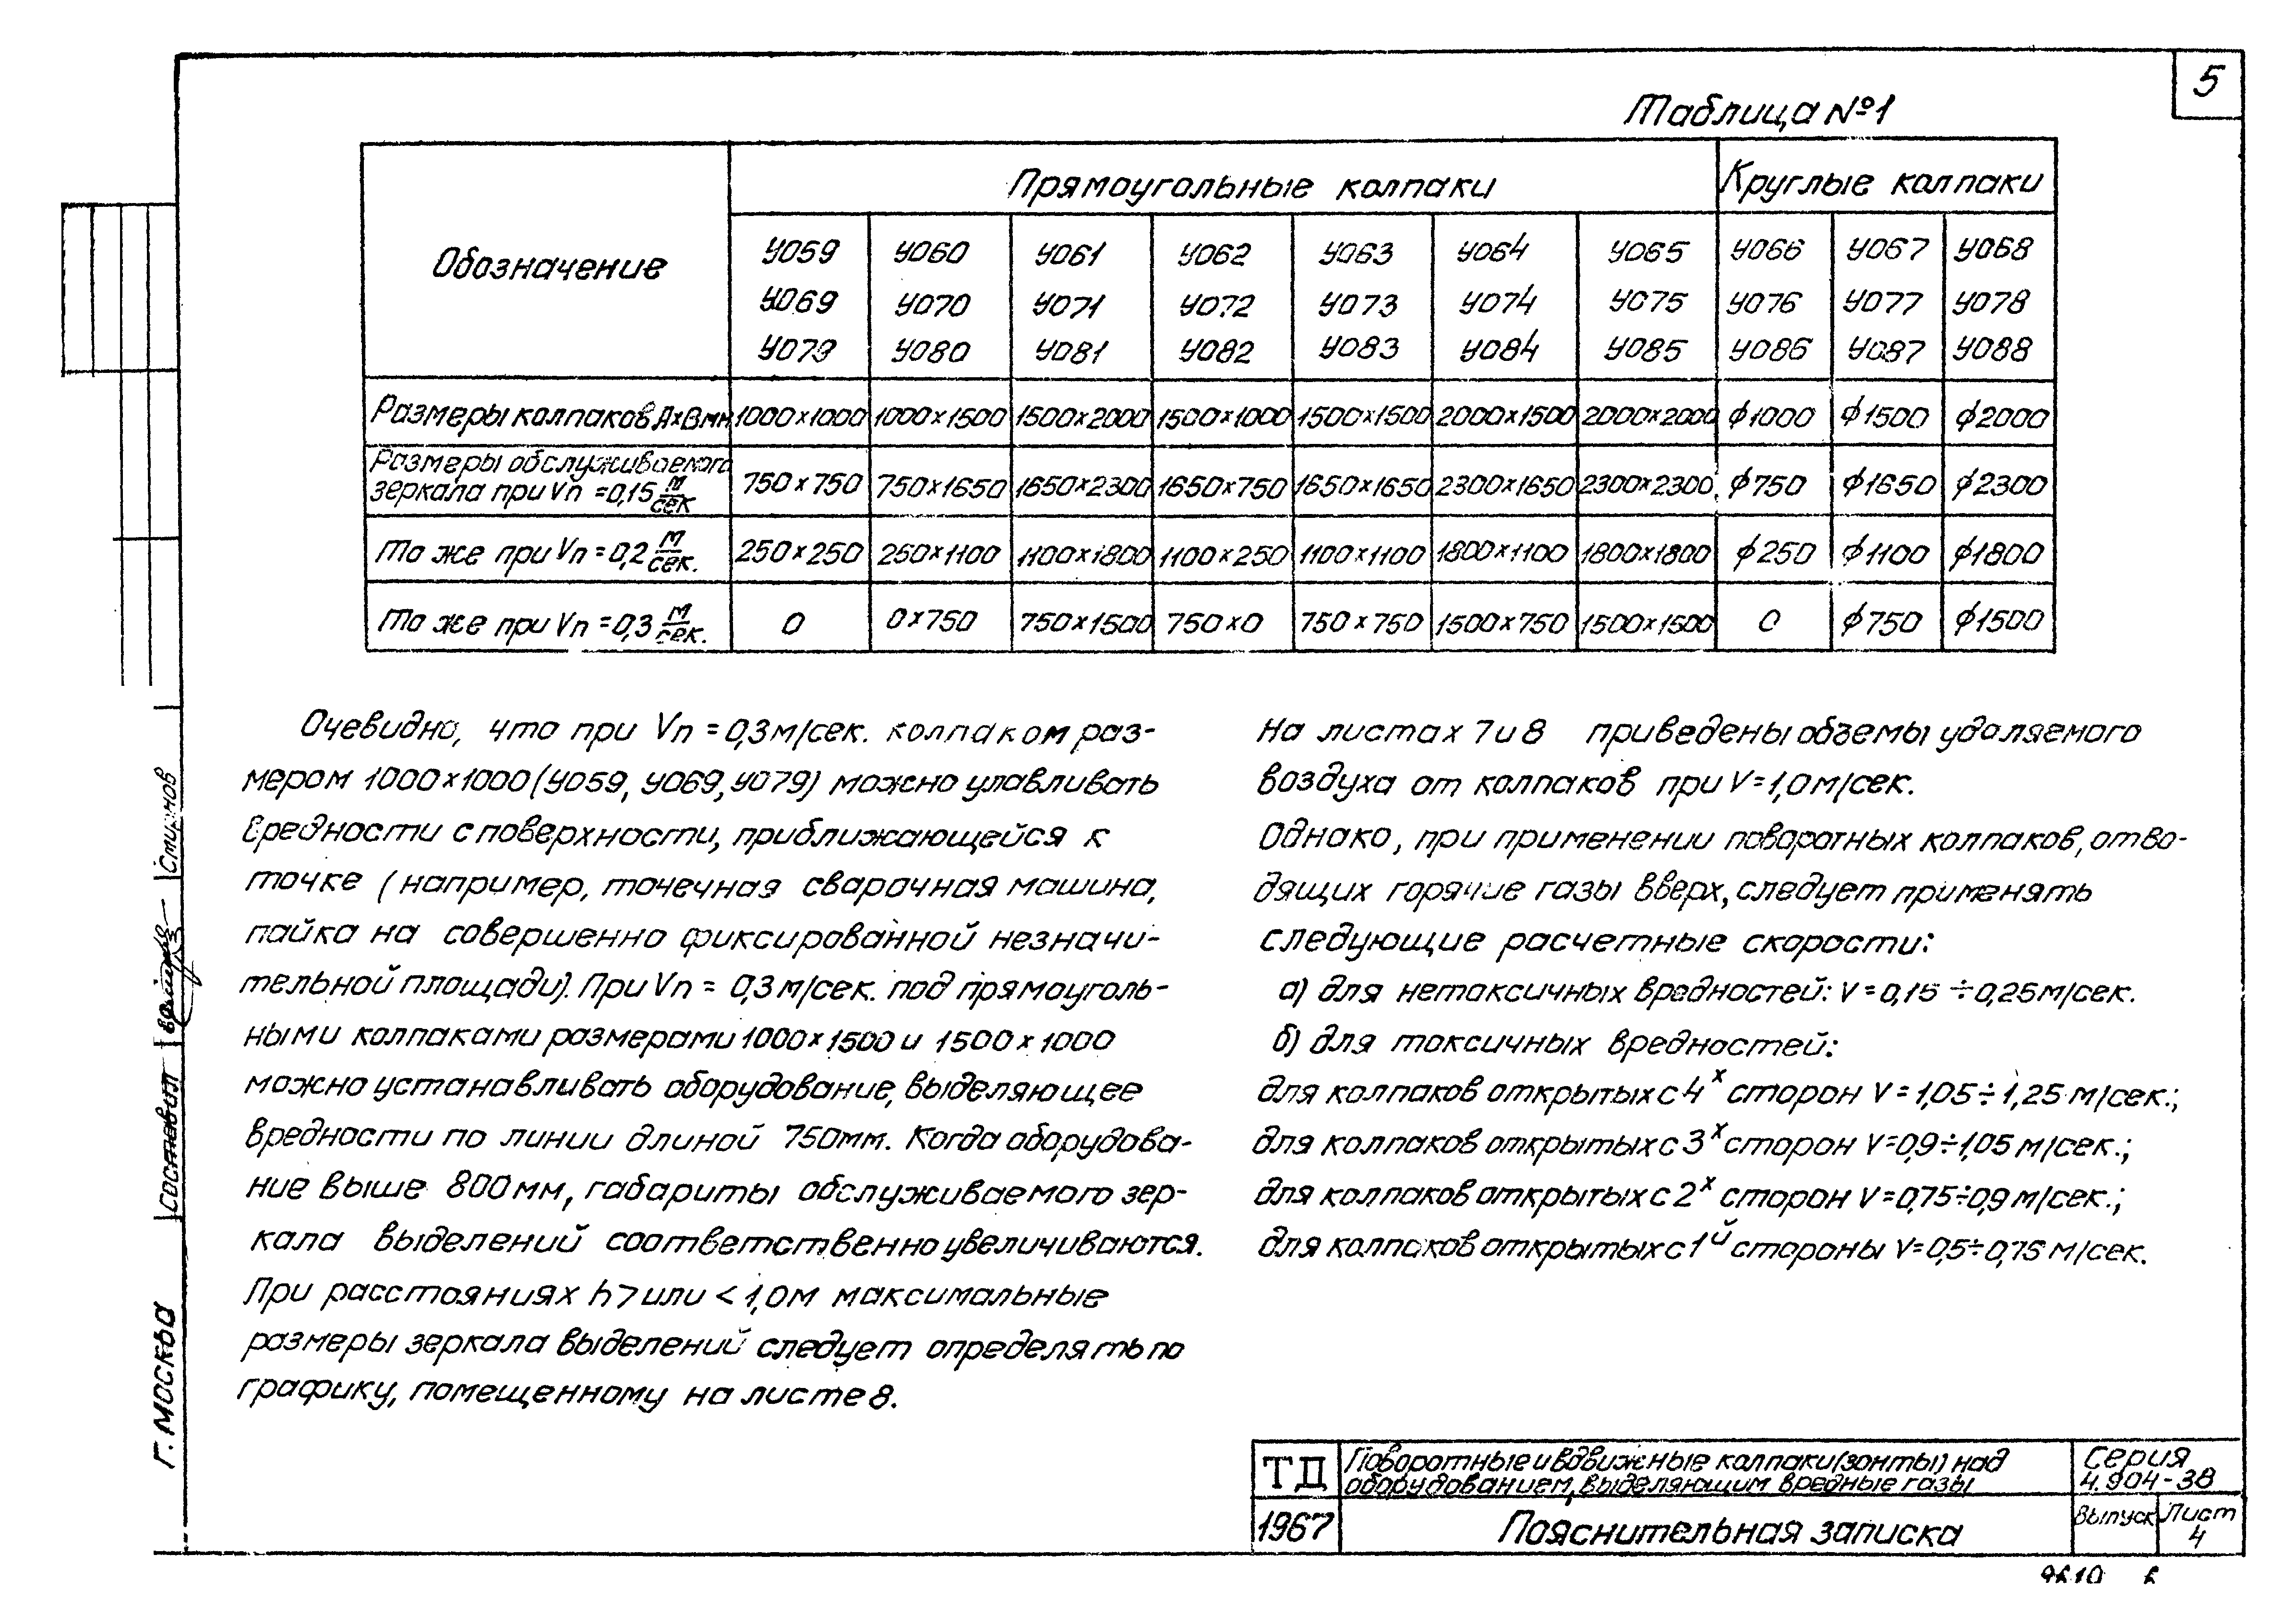 5
Таблица №1
Обозначение
Прямоугольные колпаки
Круглые колпаки
У059 У060 У061 У062 У063 У064 У065 У066 У067 У068
У069 У070 У071 У072 У073 У074 У075 У076 У077 У078
У079 У080 У081 У082 У083 У084 У085 У086 У087 У088
Размеры колпаков АхВмм 1000×1000 1000×1500 1500×2000 1500×1000 1500×1500 2000×1500 2000×2000 ϕ1000 ϕ1500 ϕ2000
Размеры обслуживаемого
зеркала при Vп =0,15 м/сек 750×750 750×1650 1650×2300 1650×750 1650×1650 2300×1650 2300×2300 ϕ750 ϕ1650 ϕ2300
То же при Vп =0,2 м/сек. 250×250 250×1100 1100×1800 1100×250 1100×1100 1800×1100 1800×1800 ϕ250 ϕ1100 ϕ1800
То же при Vп =0,3 м/сек. 0 0×750 750×1500 750×0 750×750 1500×750 1500×1500 0 ϕ750 ϕ1500
Очевидно, что при Vп = 0,3 м/сек. колпаком раз-
мером 1000×1000 (У059, У069, У079) можно улавливать
вредности с поверхности, приближающейся к
точке (например, точечная сварочная машина,
пайка на совершенно фиксированной незначи-
тельной площади). При Vп = 0,3 м/сек. под прямоуголь-
ными колпаками размерами 1000×1500 и 1500×1000
можно устанавливать оборудование, выделяющее
вредности по линии длиной 750мм. Когда оборудова-
ние выше 800мм, габариты обслуживаемого зер-
кала выделений соответственно увеличиваются.
При расстояниях h > или < 1,0м максимальные
размеры зеркала выделений следует определять по
графику, помещенному на листе 8.
На листах 7 и 8 приведены обземы удаляемого
воздуха от колпаков при V=1,0 м/сек.
Однако, при применении поворотных колпаков, отво-
дящих горячие газы вверх, следует применять
следующие расчетные скорости:
а) для нетоксичных вредностей: V=0,15 ÷0,25 м/сек.
б) для токсичных вредностей:
для колпаков открытых с 4х сторон V = 1,05 ÷ 1,25 м/сек.;
для колпаков открытых с 3х сторон V=0,9÷1,05 м/сек.;
для колпаков открытых с 2х сторон V=0,75÷0,9 м/сек.;
для колпаков открытых с 1й стороны V=0,5÷0,75 м/сек.
г. Москва
составил
Смирнов
ТД
Поворотные и вдвижные колпаки (зонты) над
оборудованием, выделяющим вредные газы
Серия
4.904-38
1967
Пояснительная записка
Выпуск
Лист
4
9610 6